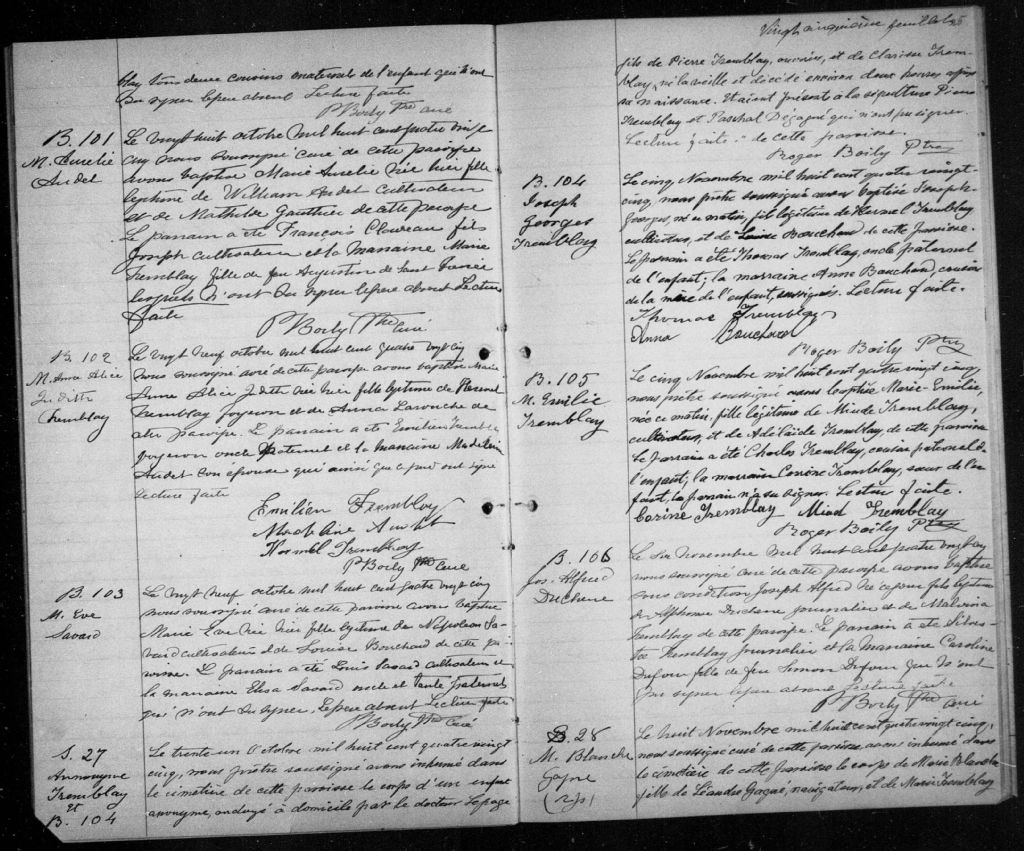 tous deux cousins maternel de l'enfant qui n'ont
su signer le père absent Lecture faite
P Boily Ptre curé
B. 101
M. Aurélie
Audet
Le vingt huit octobre mil huit cent quatre vingt
cinq nous soussigné curé de cette paroisse
avons baptisé Marie Aurelie née hier fille
legitime de William Audet Cultivateur
et de Mathilde Gauthier de cette paroisse
Le parrain a été François fils
Joseph cultivateur et la marraine Marie
Tremblay fille de feu Augustin de Saint
lesquels n'ont su signer le père absent Lecture
faite
P Boily Ptre Curé
B. 102
M. Anna Alice
Judith
Tremblay
Le vingt neuf octobre mil huit cent quatre vingt cinq
nous soussigné curé de cette paroisse avons baptisé Marie
Anna Alice Judith née hier fille legitime de
Tremblay forgeron et de Anna Larouche de
cette paroisse. Le parrain a été Emilien Tremblay
forgeron oncle paternel et la marraine Madeleine
Audet son épouse qui ainsi que le père ont signé
Lecture faite
Emilien Tremblay
Madeleine Audet
Tremblay
P Boily Ptre Curé
B. 103
M. Eve
Savard
Le vingt neuf octobre mil huit cent quatre vingt cinq
nous soussigné curé de cette paroisse avons baptisé
Marie Eve née hier fille legitime de Napoleon Sa-
vard cultivateur et de Louise Bouchard de cette pa-
roisse. Le parrain a été Louis Savard cultivateur et
la marraine Elisa Savard oncle et tante paternel
qui n'ont su signer. Le père absent Lecture faite
P Boily Ptre Curé
S. 27
Annonyme
Tremblay
et
B. 104
Le trente un Octobre mil huit cent quatre vingt
cinq, nous prêtre soussigné avons inhumé dans
le cimetière de cette paroisse le corps d'un enfant
anonyme, ondoyé à domicile par le docteur Lepage
Vingt cinquième feuillet 25
fils de Pierre Tremblay, ouvrier, et de Clarisse Trem-
blay, né la veille et décédé environ deux heures après
sa naissance. Etaient présent à la sépulture Pierre
Tremblay et Paschal Dégagné qui n'ont pu signer.
Lecture faite. de cette paroisse.
Roger Boily Ptre
B. 104
Joseph
Georges
Tremblay
Le cinq Novembre mil huit cent quatre vingt-
cinq, nous prêtre soussigné avons baptisé Joseph-
Georges, né ce matin, fils légitime de Tremblay
cultivateur, et de Louise Bouchard de cette paroisse.
Le parrain a été Thomas Tremblay, oncle paternel
de l'enfant; la marraine Anna Bouchard, cousine
de la mère de l'enfant, soussignés. Lecture faite.
Thomas Tremblay
Anna Bouchard
Roger Boily Ptre
B. 105
M. Emélie
Tremblay
Le cinq Novembre mil huit cent quatre vingt cinq,
nous prêtre soussigné avons baptisé Marie-Emélie,
née ce matin, fille légitime de Tremblay,
cultivateur, et de Adélaide Tremblay, de cette paroisse
Le parrain a été Charles Tremblay, cousin paternel de
l'enfant; la marraine Corinne Tremblay, sœur de l'en-
fant, le parrain n'a su signer. Lecture faite.
Corine Tremblay Tremblay
Roger Boily Ptre
B. 106
Jos. Alfred
Duchene
Le six novembre mil huit cent quatre vingt cinq
nous soussigné curé de cette paroisse avons baptisé
sous condition Joseph Alfred né ce jour fils legitime
de Alphonse Duchene journalier et de Malvina
Tremblay de cette paroisse. Le parrain a été Silves-
tre Tremblay journalier et la marraine Caroline
Dufour fille de feu Simon Dufour qui n'ont
su signer le père absent Lecture faite
P Boily Ptre curé
28
M. Blanche
Gagné
Le huit Novembre mil huit cent quatre vingt cinq,
nous soussigné curé de cette paroisse avons inhumé dans
le cimetière de cette paroisse le corps de Marie Blanche
fille de Léandre Gagné, navigateur, et de Marie Tremblay